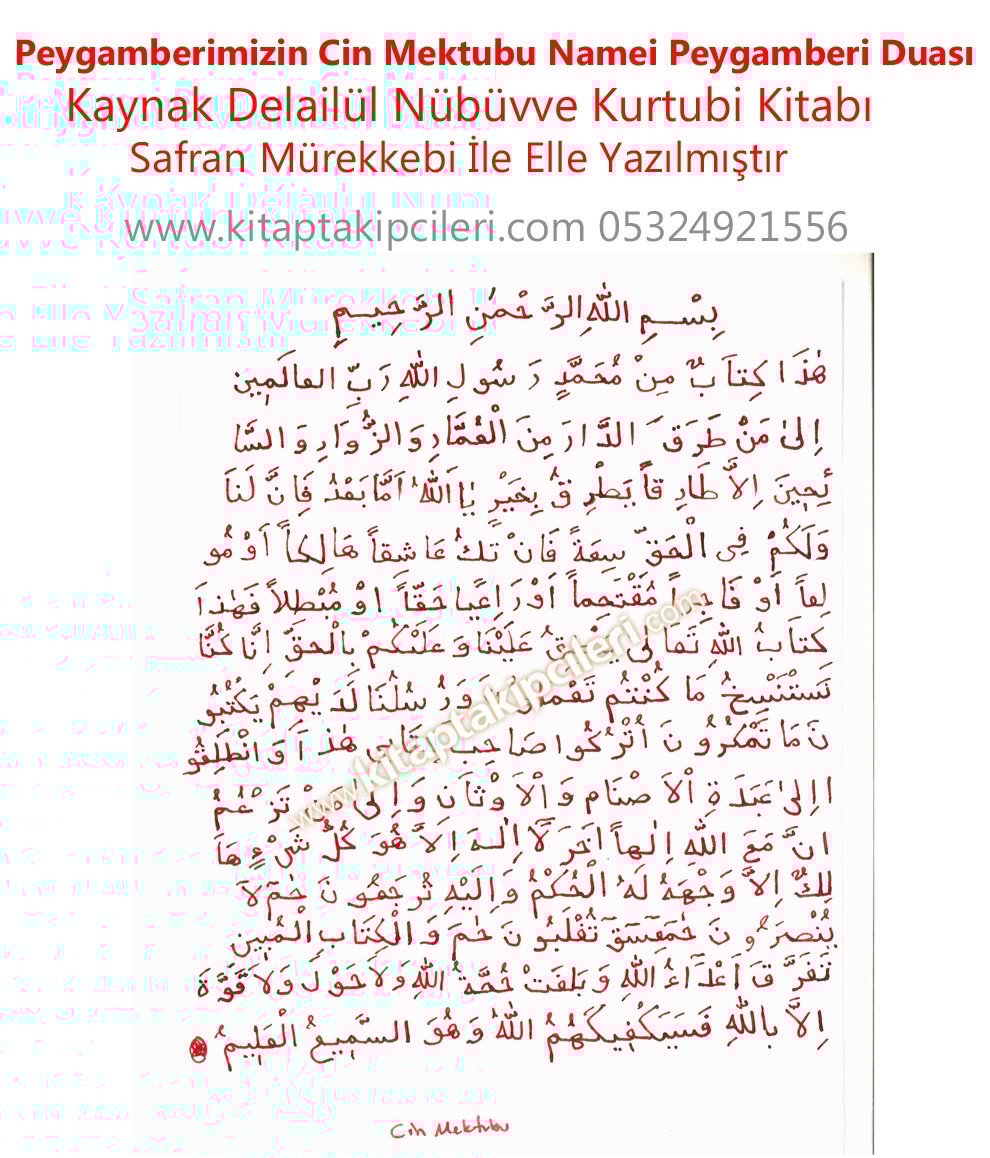 Peygamberimizin Cin Mektubu Namei Peygamberi Duası
Kaynak Delailül Nübüvve Kurtubi Kitabı
Safran Mürekkebi İle Elle Yazılmıştır
www.kitaptakipcileri.com 05324921556
بِسْــمِ اللّٰهِ الرَّحْمٰنِ الرَّحِيــمِ
هٰذَا كِتَابٌ مِنْ مُحَمَّدٍ رَسُولِ اللّٰهِ رَبِّ العَالَمِين
اِلىٰ مَنْ طَرَقَ الدَّارَ مِنَ الْعُمَّارِ وَالزُّوَارِ وَالسَّا
ئِحِينَ اِلاَّ طَارِقاً يَطْرِقُ بِخَيْرٍ يَا اَللّٰهُ اَمَّا بَعْدُ فَاِنَّ لَنَا
وَلَكُمْ فِى الْحَقِّ سِعَةً فَاِنْ تَكُ عَاشِقاً هَالِكاً اَوْ مُو
لِعاً اَوْ فَاجِراً مُقْتَحِماً اَوْ رَاعِيًا حَقّاً اوْ مُبْطِلاً فَهٰذَا
كِتَابُ اللّٰهِ تَعَالىٰ يَنْطِقُ عَلَيْنَا وَ عَلَيْكُمْ بِالْحَقِّ اِنَّا كُنَّا
نَسْتَنْسِخُ مَا كُنْتُمْ تَعْمَلُونَ وَرُسُلُنَا لَدَيْهِمْ يَكْتُبُو
نَ مَا تَمْكُرُونَ اُتْرُكُوا صَاحِبَ كِتَابِى هٰذَا وَانْطَلِقُو
ا اِلىٰ عَبَدَةِ اْلاَصْنَامِ وَاْلاَوْثَانِ وَاِلىٰ مَنْ تَزْعُمُ
انَّ مَعَ اللّٰهِ اِلٰهاً آخَرَ لَا اِلٰــهَ اِلاَّ هُوَ كُلُّ شَىْءٍ هَا
لِكٌ اِلاَّ وَجْهَهُ لَهُ الْحُكْمُ وَاِلَيْهِ تُرْجَعُونَ حٰمٓ لَا
يُنْصَرُونَ حٰمٓعٓسٓقٓ تُغْلَبُونَ حٰمٓ وَالْكِتَابِ الْمُبِين
تَفَرَّقَ اَعْدَٓاءُ اللّٰهِ وَ بَلَغَتْ حُجَّةُ اللّٰهِ وَلَا حَوْلَ وَلَا قُوَّةَ
اِلاَّ بِاللّٰهِ فَسَيَكْفِيكَهُمُ اللّٰهُ وَهُوَ السَّمِيعُ الْعَلِيمُ
www.kitaptakipcileri.com
Cin Mektubu